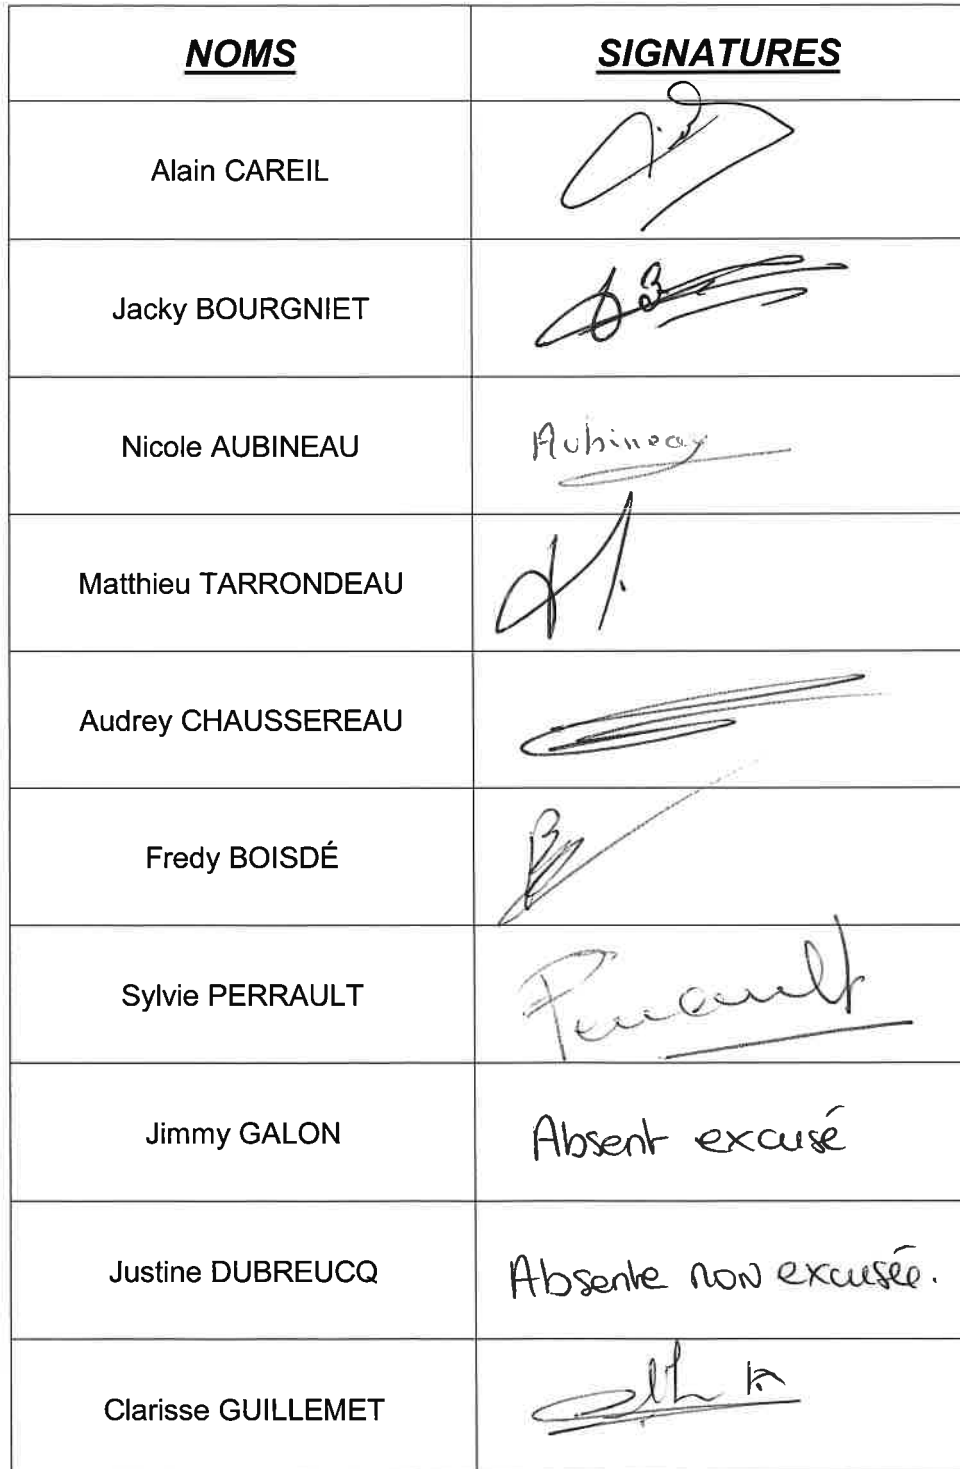 NOMS
SIGNATURES
Alain CAREIL
Jacky BOURGNIET
Nicole AUBINEAU
Aubineau
Matthieu TARRONDEAU
Audrey CHAUSSEREAU
Fredy BOISDÉ
Sylvie PERRAULT
Perrault
Jimmy GALON
Absent excusé
Justine DUBREUCQ
Absente non excusée.
Clarisse GUILLEMET